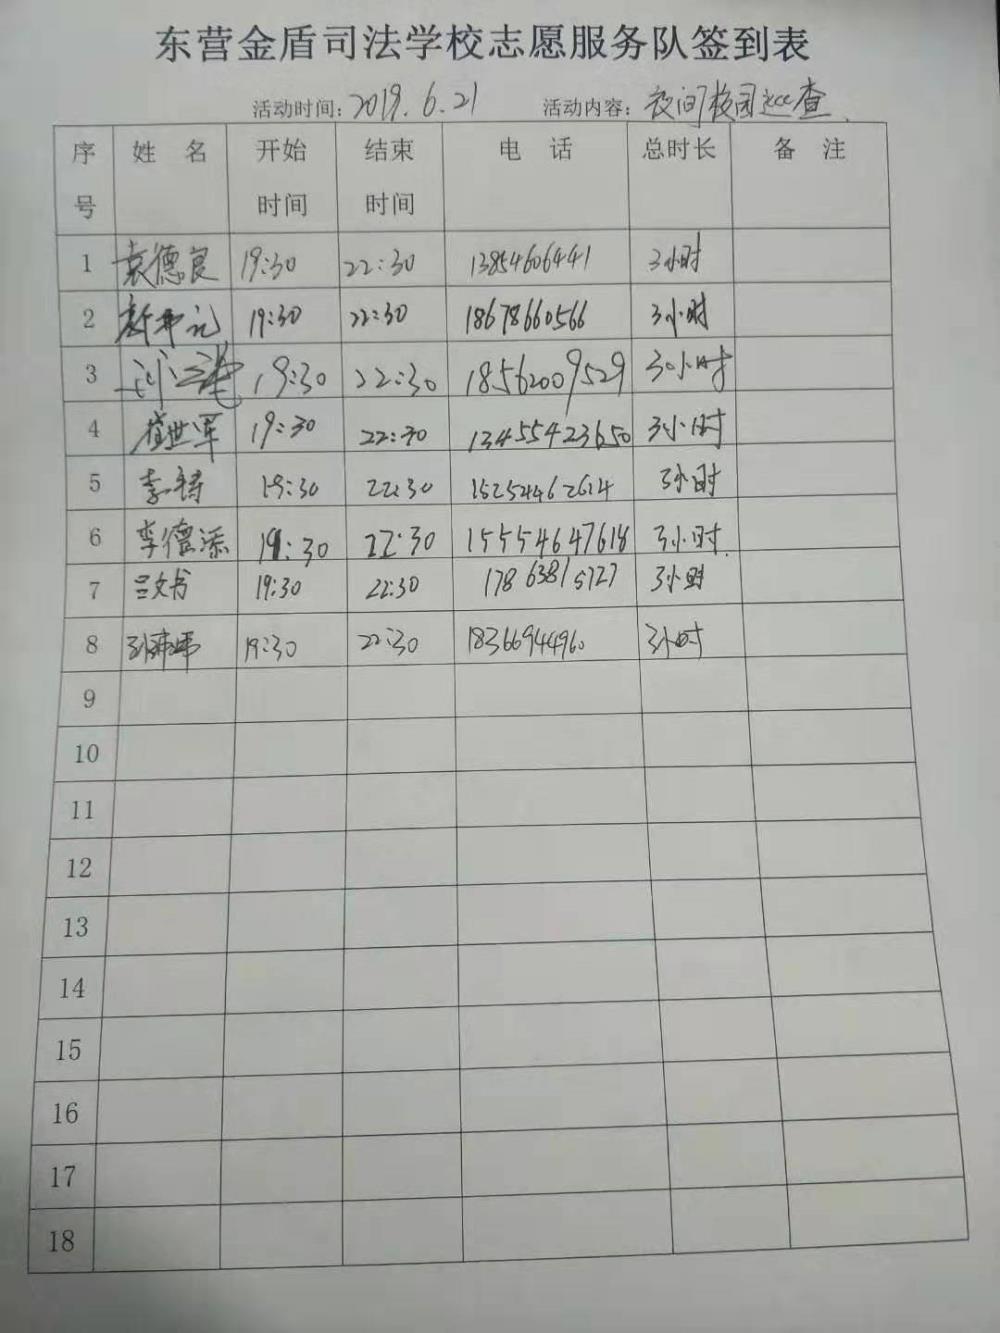 东营金盾司法学校志愿服务队签到表
活动时间：2019.6.21 活动内容：夜间校园巡查.
序号 姓 名 开始时间 结束时间 电 话 总时长 备 注
1 袁德良 19:30 22:30 13854606441 3小时
2 19:30 22:30 18678660566 3小时
3 19:30 22:30 18562009529 3小时
4 崔世军 19:30 22:30 13455423650 3小时
5 19:30 22:30 152524462614 3小时
6 李德添 19:30 22:30 15554647618 3小时.
7 吕文书 19:30 22:30 17863815727 3小时
8 19:30 22:30 18366944960 3小时
9
10
11
12
13
14
15
16
17
18